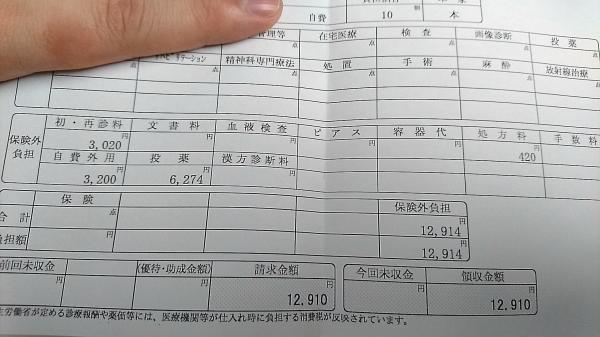 自費 10 割 本
管理等 在宅医療 検査 画像診断 投薬
点 点 点 点 点
リハビリテーション 精神科専門療法 処置 手術 麻酔 放射線治療
点 点 点 点 点
保険外負担 初・再診料 文書料 血液検査 ピアス 容器代 処方料 手数料
3,020円 円 円 円 円 420円
自費外用 投薬 漢方診断料
3,200円 6,274円 円
保険 保険外負担
合計 点 12,914円
負担額 円 12,914円
前回未収金 (優待・助成金額) 請求金額 今回未収金 領収金額
円 円 12,910円 円 12,910円
生労働省が定める診療報酬や薬価等には、医療機関等が仕入れ時に負担する消費税が反映されています。